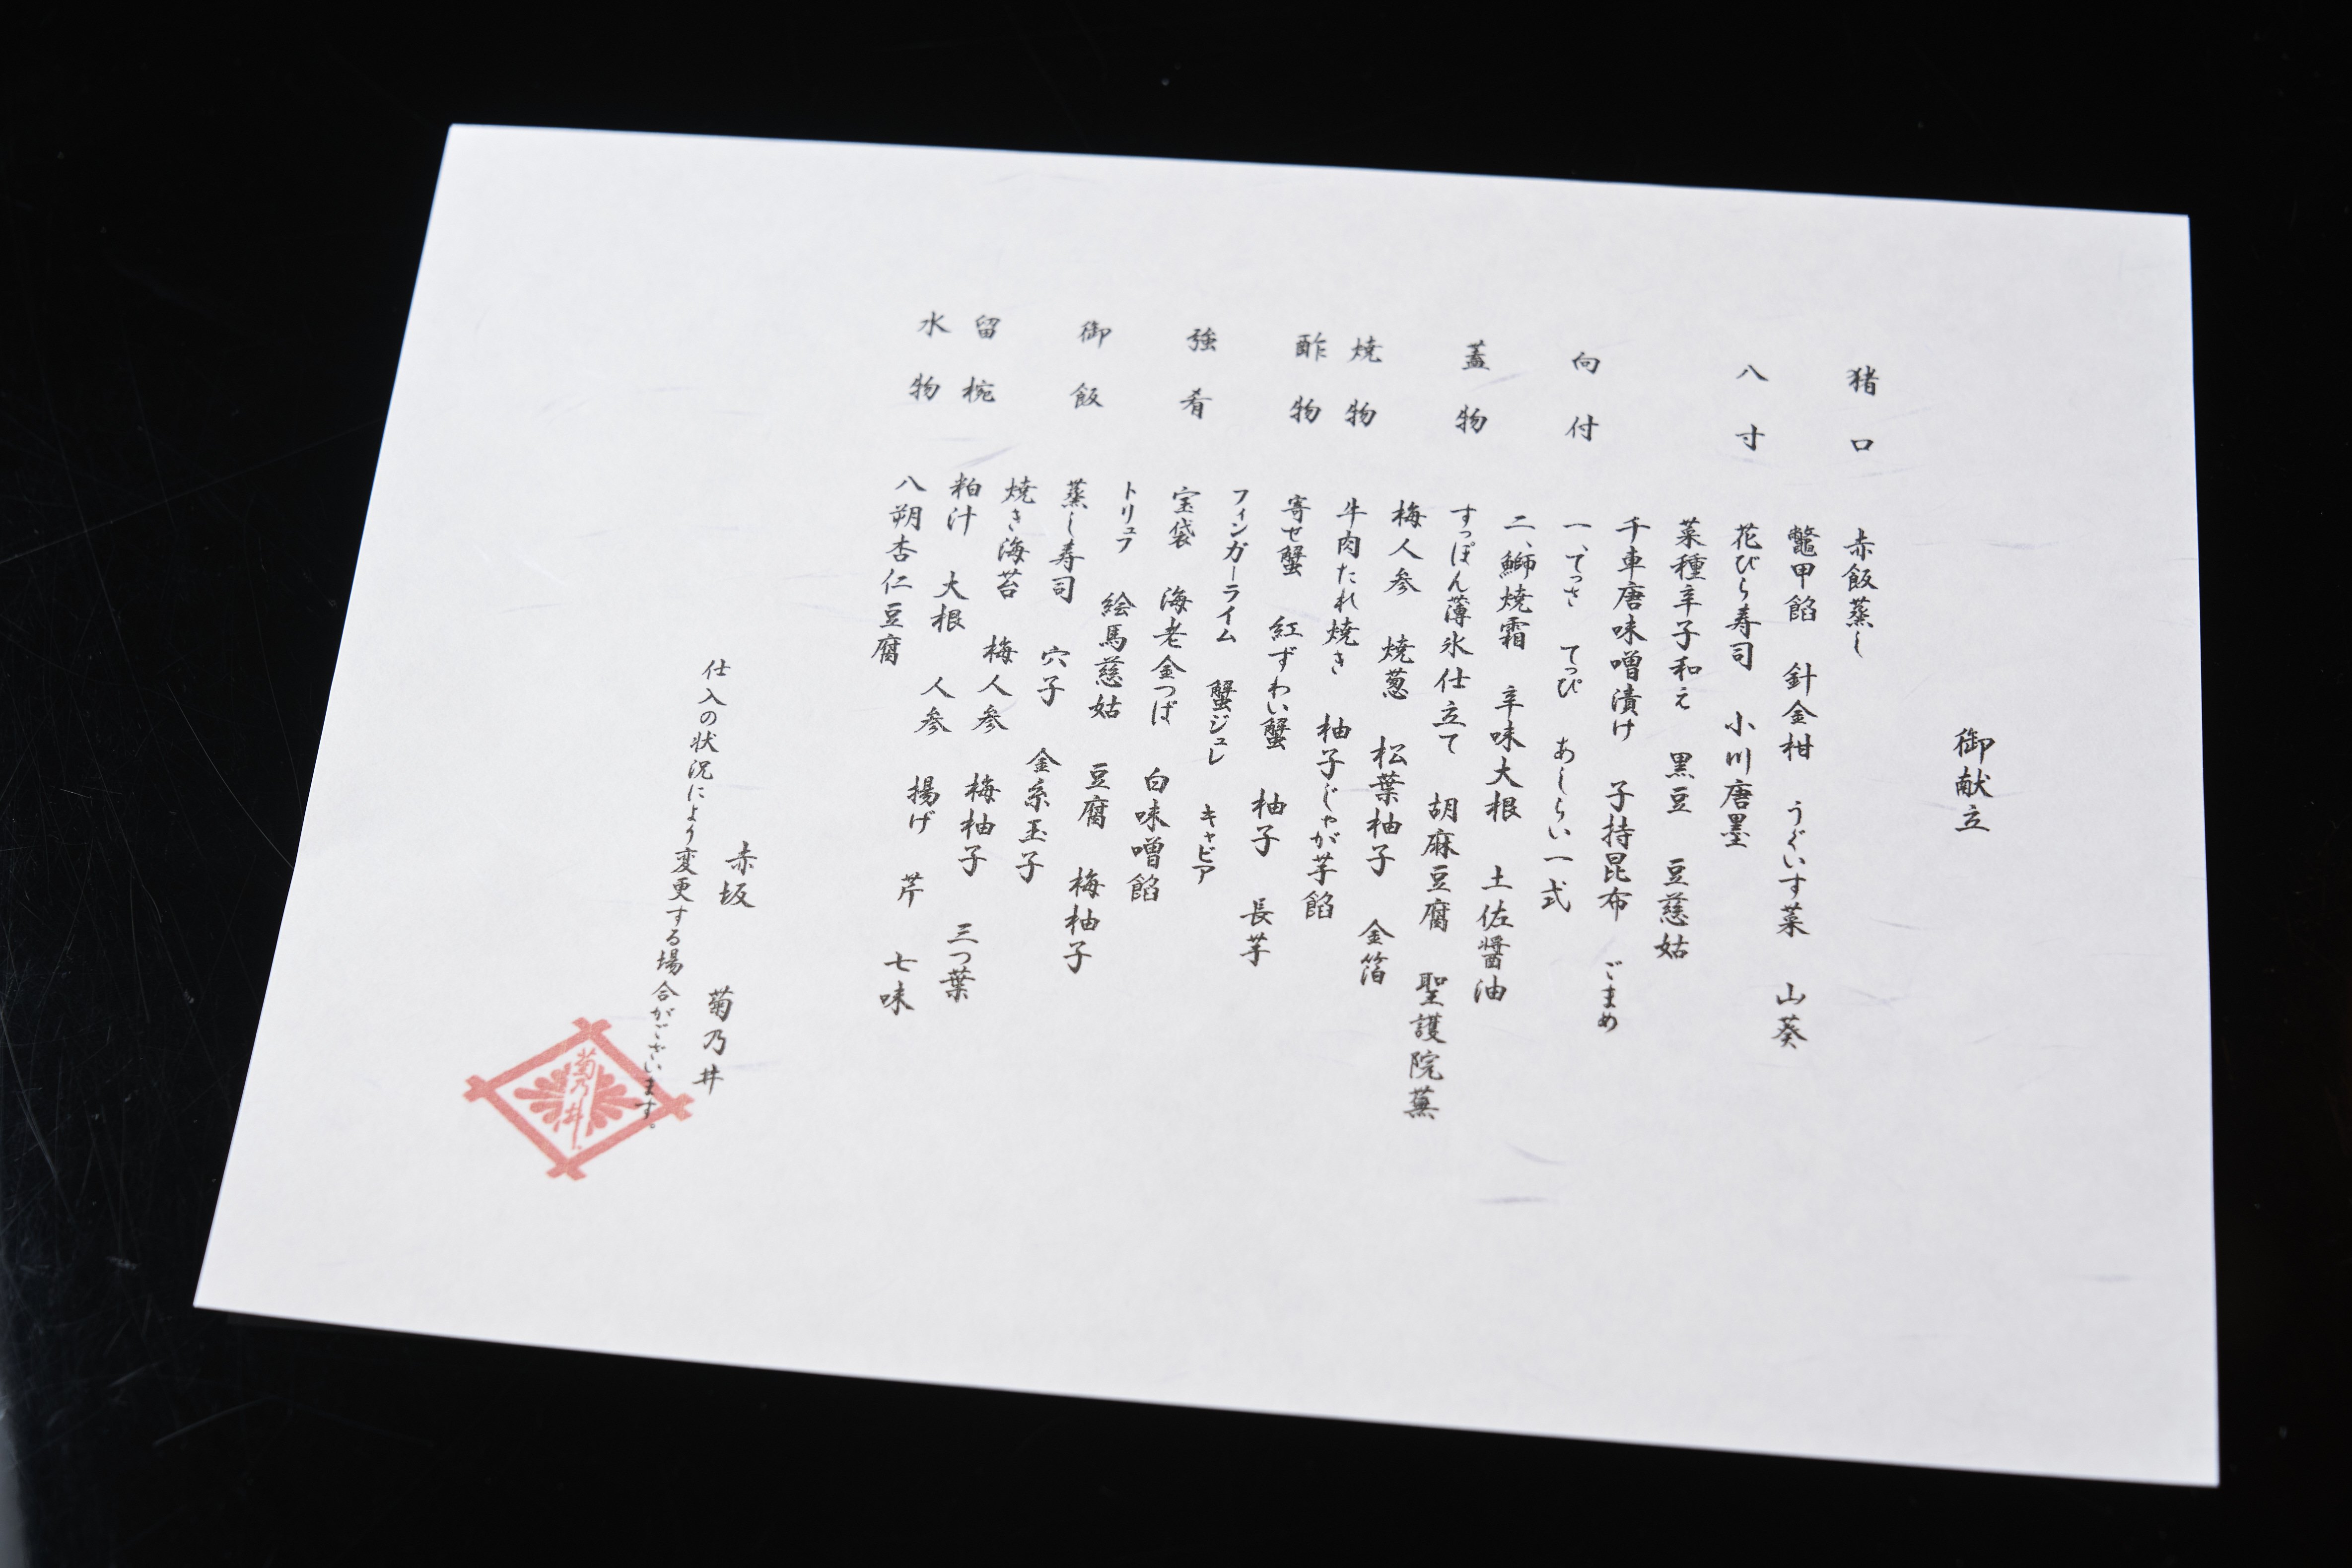 御献立
猪口 赤飯蒸し
鼈甲餡 針金柑 うぐいす菜 山葵
八寸 花びら寿司 小川唐墨
菜種辛子和え 黒豆 豆慈姑
千車唐味噌漬け 子持昆布 ごまめ
向付 一、てっさ てっぴ あしらい一式
二、鰤焼霜 辛味大根 土佐醤油
蓋物 すっぽん薄氷仕立て 胡麻豆腐 聖護院蕪
梅人参 焼葱 松葉柚子 金箔
焼物 牛肉たれ焼き 柚子じゃが芋餡
酢物 寄せ蟹 紅ずわい蟹 柚子 長芋
フィンガーライム 蟹ジュレ キャビア
強肴 宝袋 海老金つば 白味噌餡
トリュフ 絵馬慈姑 豆腐 梅柚子
御飯 蒸し寿司 穴子 金糸玉子
焼き海苔 梅人参 梅柚子 三つ葉
留椀 粕汁 大根 人参 揚げ 芹 七味
水物 八朔杏仁豆腐
赤坂 菊乃井
仕入の状況により変更する場合がございます。
菊乃井